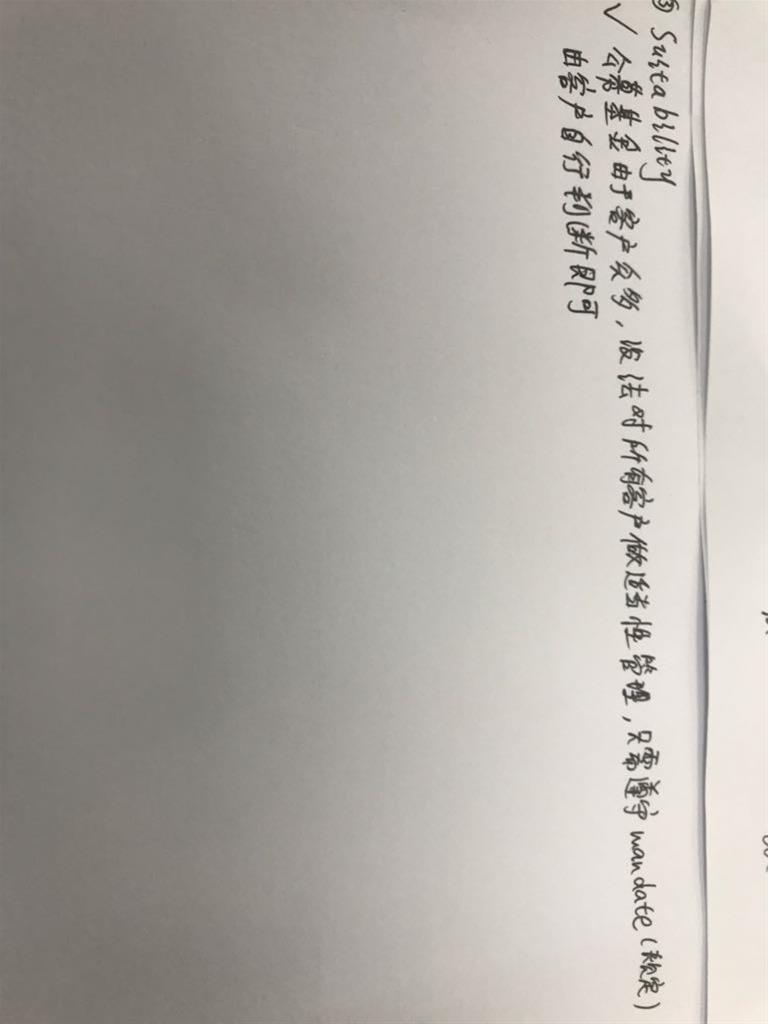 ③ Suitability
✓ 公募基金由于客户众多,没法对所有客户做适当性管理,只需遵守 mandate(规定)
由客户自行判断即可